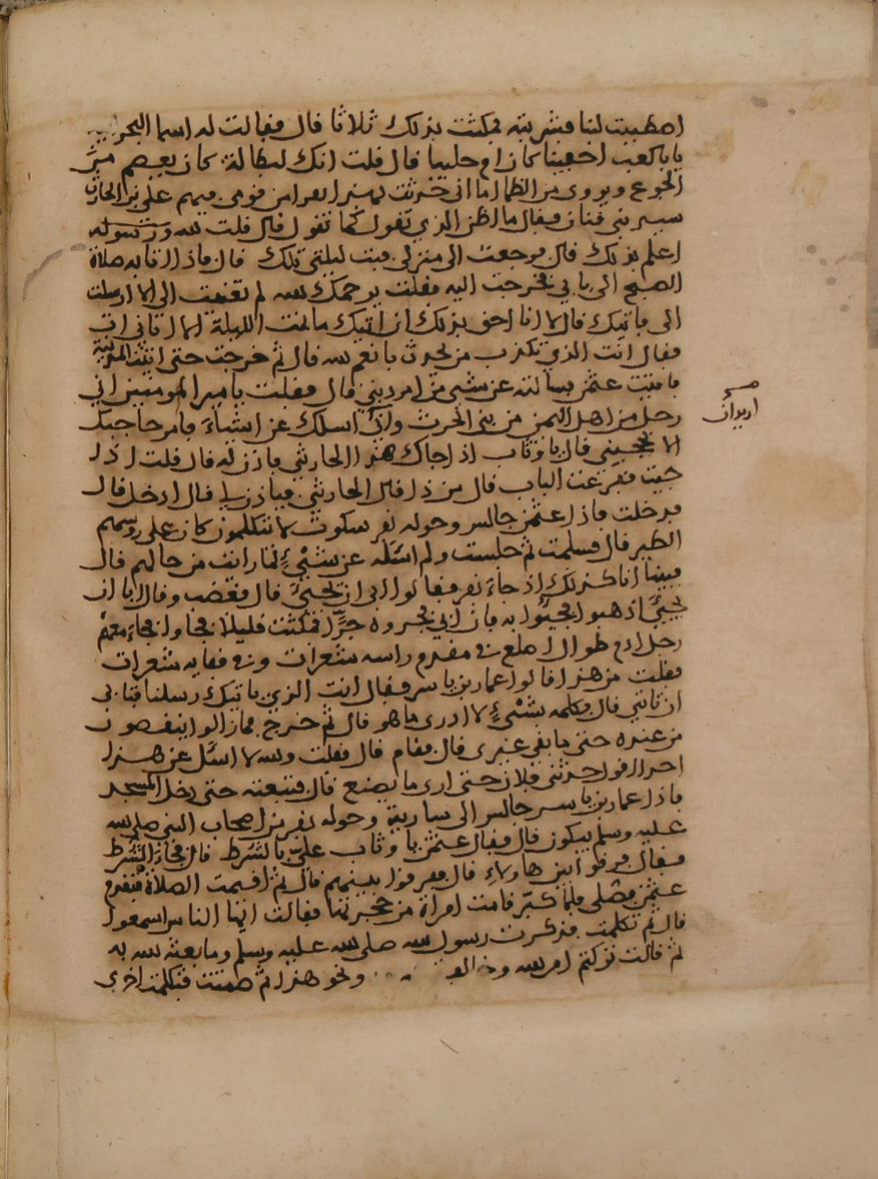 اصطببت لنا فشربته فمكثت بذلك ثلاثا قال فقالت له اسما
يابا كعب احفينا كان ام حليبا قال قلت انك لبطالة كان يعصم من
الجوع ويروي من الظما اما اني حدثت بهذا نفرا من قومي فيهم علي بن الحارث
سيد بني قنان فقال ما اظن الذي تقول كما تقول قال قلت الله ورسوله
اعلم بذلك قال فرجعت الى منزلي فبت ليلتي تلك قال فاذا انا به صلاة
الصبح الى بابي فخرجت اليه فقلت يرحمك الله لم تعنيت الي الا ارسلت
الي فاتيك قال لا انا احق بذلك ان اتيك ما نمت الليلة الا اتاني ات
فقال انت الذي تكذب من يحدث بانعم الله قال ثم خرجت حتى اتيت المدينة
فاتيت عثمن فسالته عن شي من امر ديني قال فقلت يامير المومنين اني
رجل من اهل اليمن من بني الحرث واني اسلك عن اشياء فامر حاجبك
الا يحجبني قال ياوثاب اذا جاك هذا الحارثي فاذن له قال قلت اذا
جيت فقرعت الباب قال من ذا قال الحارثي فياذن لي قال ادخل قال
فدخلت فاذا عثمن جالس وحوله نفر سكوت لا يتكلمون كان على روسهم
الطير قال فسلمت ثم جلست ولم اسئله عن شيء لما رايت من حالهم قال
فبينا انا كذلك اذ جاء نفر فقالوا ابى ان يجيء قال فغضب وقال ابا ان
يجيء اذهبوا فجيئوا به فان ابى فجروه جرا فمكثت قليلا فجاوا فجاء معهم
رجل ادم طوال اصلع في مقدم راسه شعرات وفي قفايه شعرات
فقلت من هذا قالوا عمار بن ياسر فقال انت الذي ياتيك رسلنا فتابى
ان تاتي قال فكلمه بشيء لا ادري ما هو قال ثم خرج فما زالوا ينفضون
من عنده حتى ما بقي غيري قال فقام قال فقلت والله لا اسئل عن هذا
احدا اقول حدثني فلان حتى ارى ما يصنع قال فتبعته حتى دخل المسجد
فاذا عمار بن ياسر جالس الى سارية وحوله نفر من اصحاب النبي صلى الله
عليه وسلم يبكون قال فقال عثمن يا وثاب علي بالشرط قال فجاء الشرط
فقال فرقوا بين هاولاء قال ففرقوا بينهم قال ثم اقيمت الصلاة فتقدم
عثمن فصلى فلما كبر قامت امراة من حجرتها فقالت ايها الناس اسمعوا
قال ثم تكلمت فذكرت رسول الله صلى الله عليه وسلم وما بعثه الله به
ثم قالت تركتم امر الله وخالفـ ... ونحو هذا ثم صمتت فتكلمت اخرى